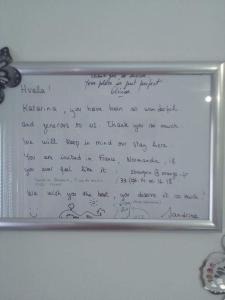 Your place is just perfect
Hvala!
Katarina, you have been so wonderful
and generous to us. Thank you so much
We will keep in mind our stay here.
You are invited in France, Normandie, if
you ever feel like it :
We wish you the best, you deserve it so much!
Sandrine